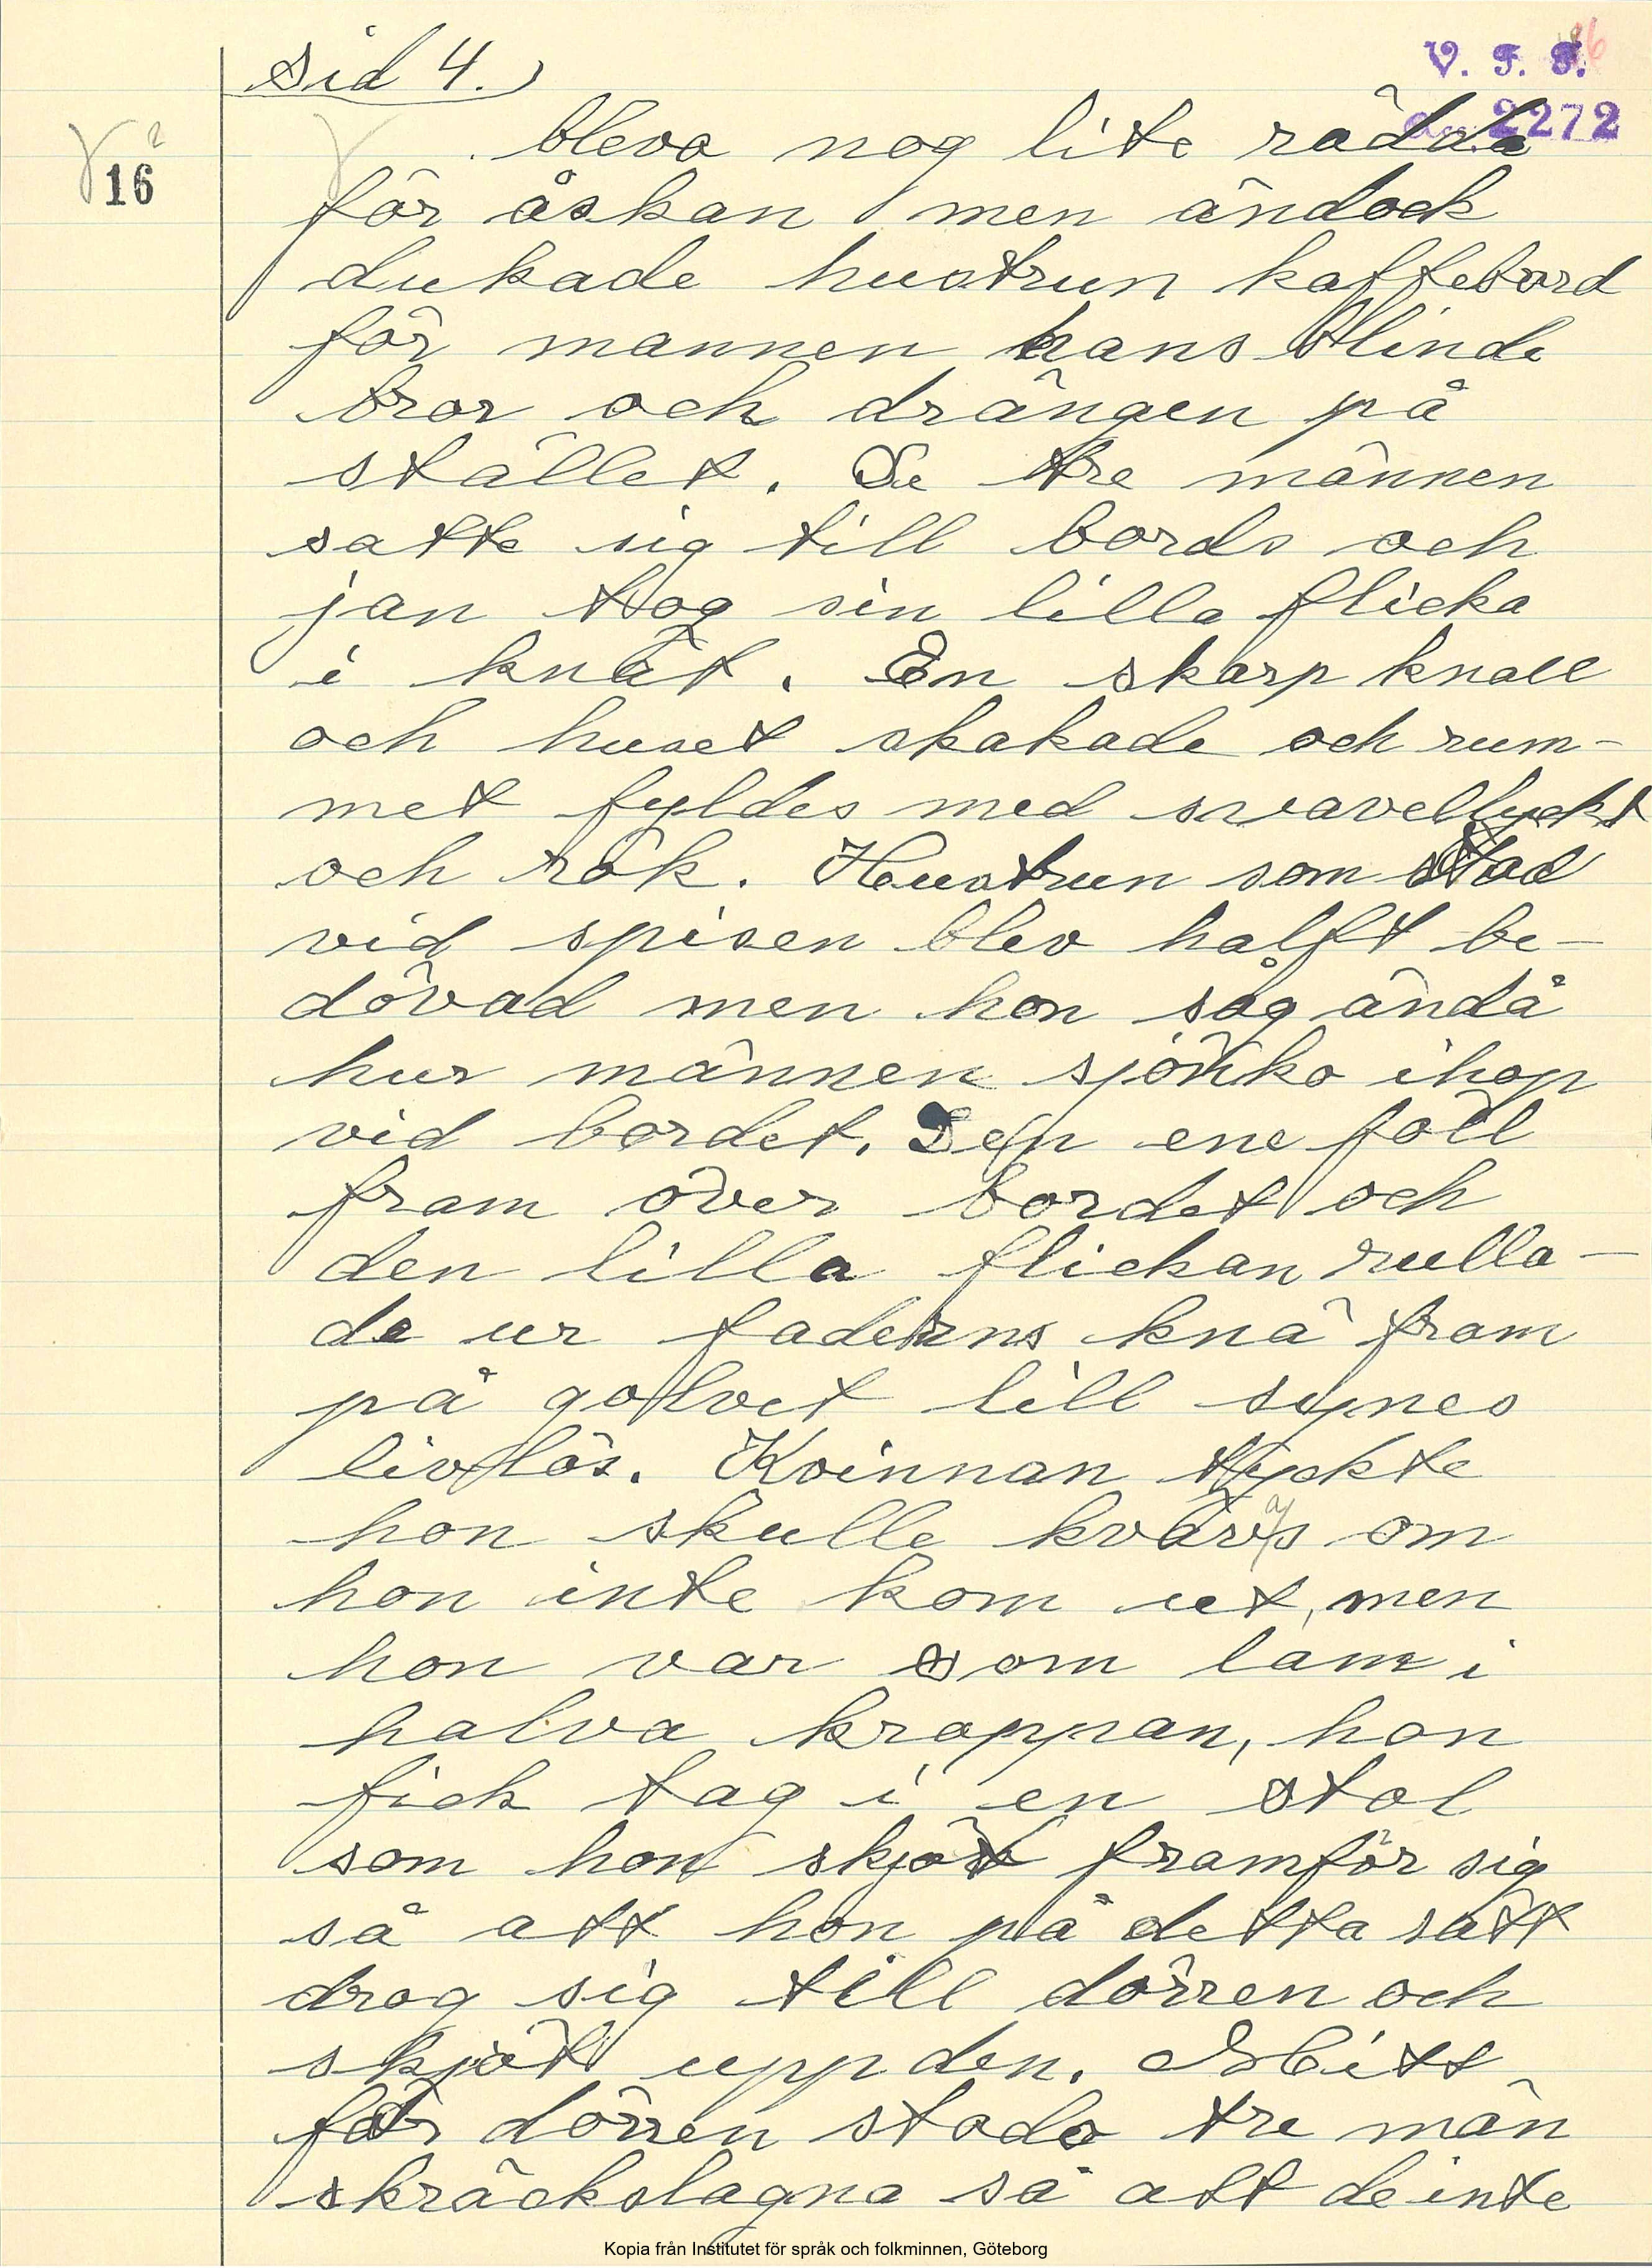 sid 4.)
V. F. F.
2272
16
bleva nog lite rädda
för åskan men ändock
dukade hustrun kaffebord
för mannen hans blinde
bror och drängen på
stället. De tre männen
satte sig till bords och
jan tog sin lilla flicka
i knät. En skarp knall
och huset skakade och rum-
met fyldes med svavellyckt
och rök. Hustrun som stod
vid spisen blev halft be-
dövad men hon såg ändå
hur männen sjönko ihop
vid bordet. Den ene föll
fram över bordet och
den lilla flickan rulla-
de ur faderns knä fram
på golvet till synes
livlös. Kvinnan tyckte
hon skulle kvävs om
hon inte kom ut, men
hon var som lam i
halva kroppan, hon
fick tag i en stol
som hon skjöt framför sig
så att hon på detta sätt
drog sig till dörren och
skjöt upp den. Mitt
för dörren stodo tre män
skräckslagna så att de inte
Kopia från Institutet för språk och folkminnen, Göteborg